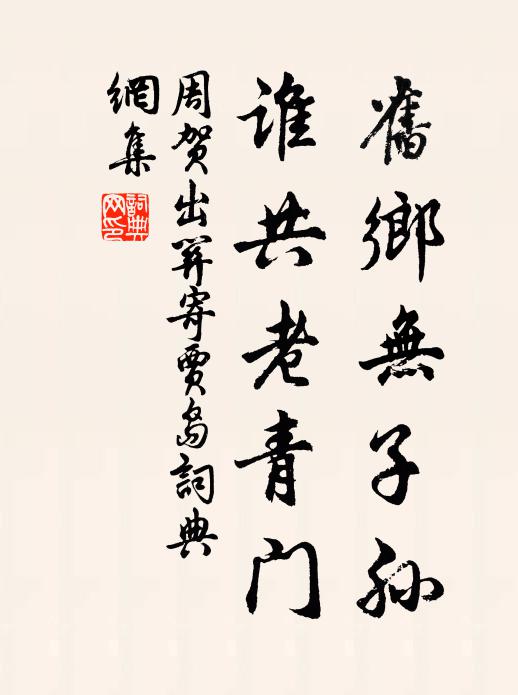 舊鄉無子孫
誰共老青门
周賀出關寄賈島詞典
網集
詞典网印